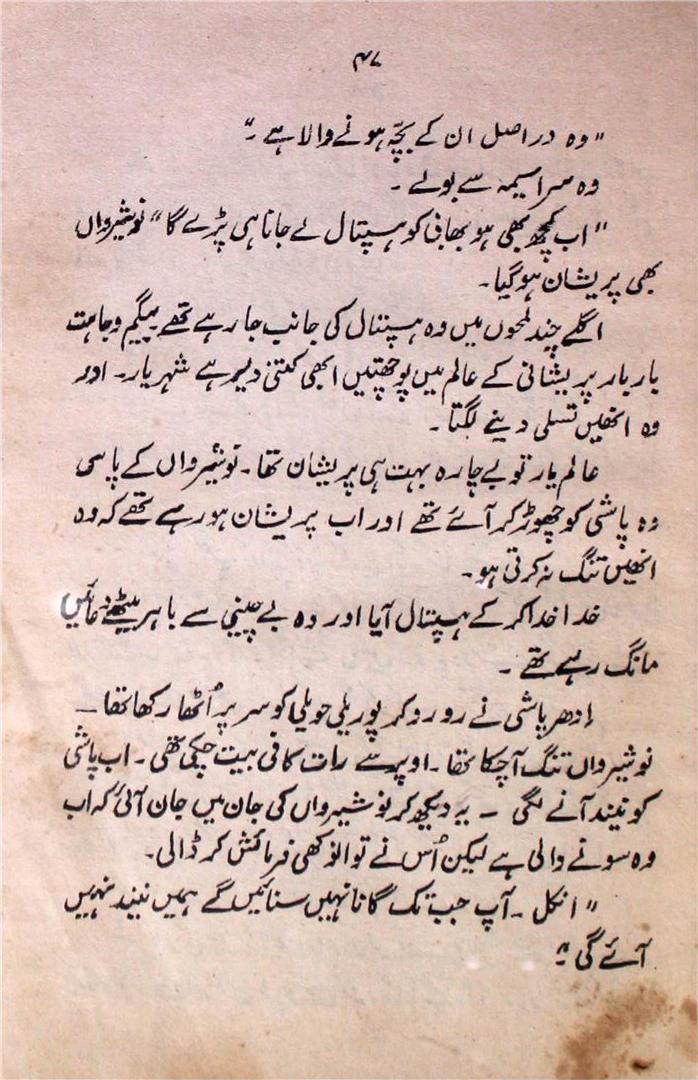 ۴۷
"وہ در اصل ان کے بچّہ ہونے والا ہے ۔"
وہ سراسیمہ سے بولے ۔
"اب کچھ بھی ہو بھابی کو ہسپتال لے جانا ہی پڑے گا" نوشیرواں
بھی پریشان ہو گیا۔
اگلے چند لمحوں میں وہ ہسپتال کی جانب جا رہے تھے بیگم وجاہت
بار بار پریشانی کے عالم میں پوچھتیں ابھی کتنی دیر ہے شہریار۔ اور
وہ انھیں تسلی دینے لگتا ۔
عالم یار تو بے چارہ بہت ہی پریشان تھا۔ نوشیرواں کے پاس
وہ پاشی کو چھوڑ کر آئے تھے اور اب پریشان ہو رہے تھے کہ وہ
انھیں تنگ نہ کرتی ہو۔
خدا خدا کر کے ہسپتال آیا اور وہ بے چینی سے باہر بیٹھے دعائیں
مانگ رہے تھے ۔
اِدھر پاشی نے رو رو کر پوری حویلی کو سر پر اُٹھا رکھا تھا۔
نوشیرواں تنگ آ چکا تھا۔ اوپر سے رات کافی بیت چکی تھی۔ اب پاشی
کو نیند آنے لگی ۔ یہ دیکھ کر نوشیرواں کی جان میں جان آئی کہ اب
وہ سونے والی ہے لیکن اُس نے تو انوکھی فرمائش کر ڈالی۔
"انکل ۔ آپ جب تک گانا نہیں سنائیں گے ہمیں نیند نہیں
آئے گی ۔"